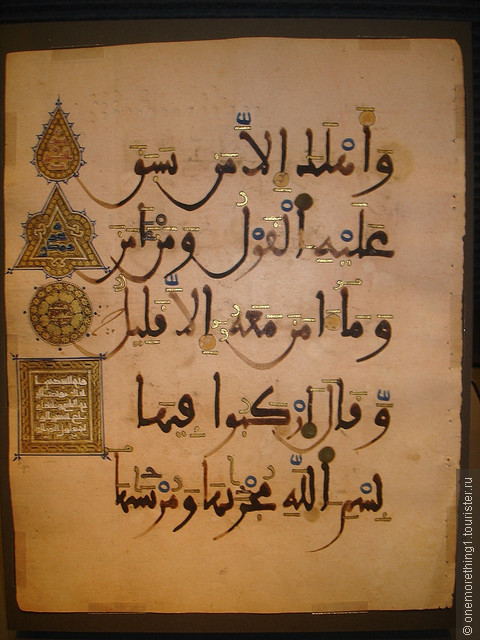 وَأَهْلَكَ إِلَّا مَن سَبَقَ
عَلَيْهِ الْقَوْلُ وَمَنْ آمَنَ
وَمَا آمَنَ مَعَهُ إِلَّا قَلِيلٌ
وَقَالَ ارْكَبُوا فِيهَا
بِسْمِ اللَّهِ مُجْرَىٰهَا وَمُرْسَىٰهَا
© onemorething1.tourister.ru